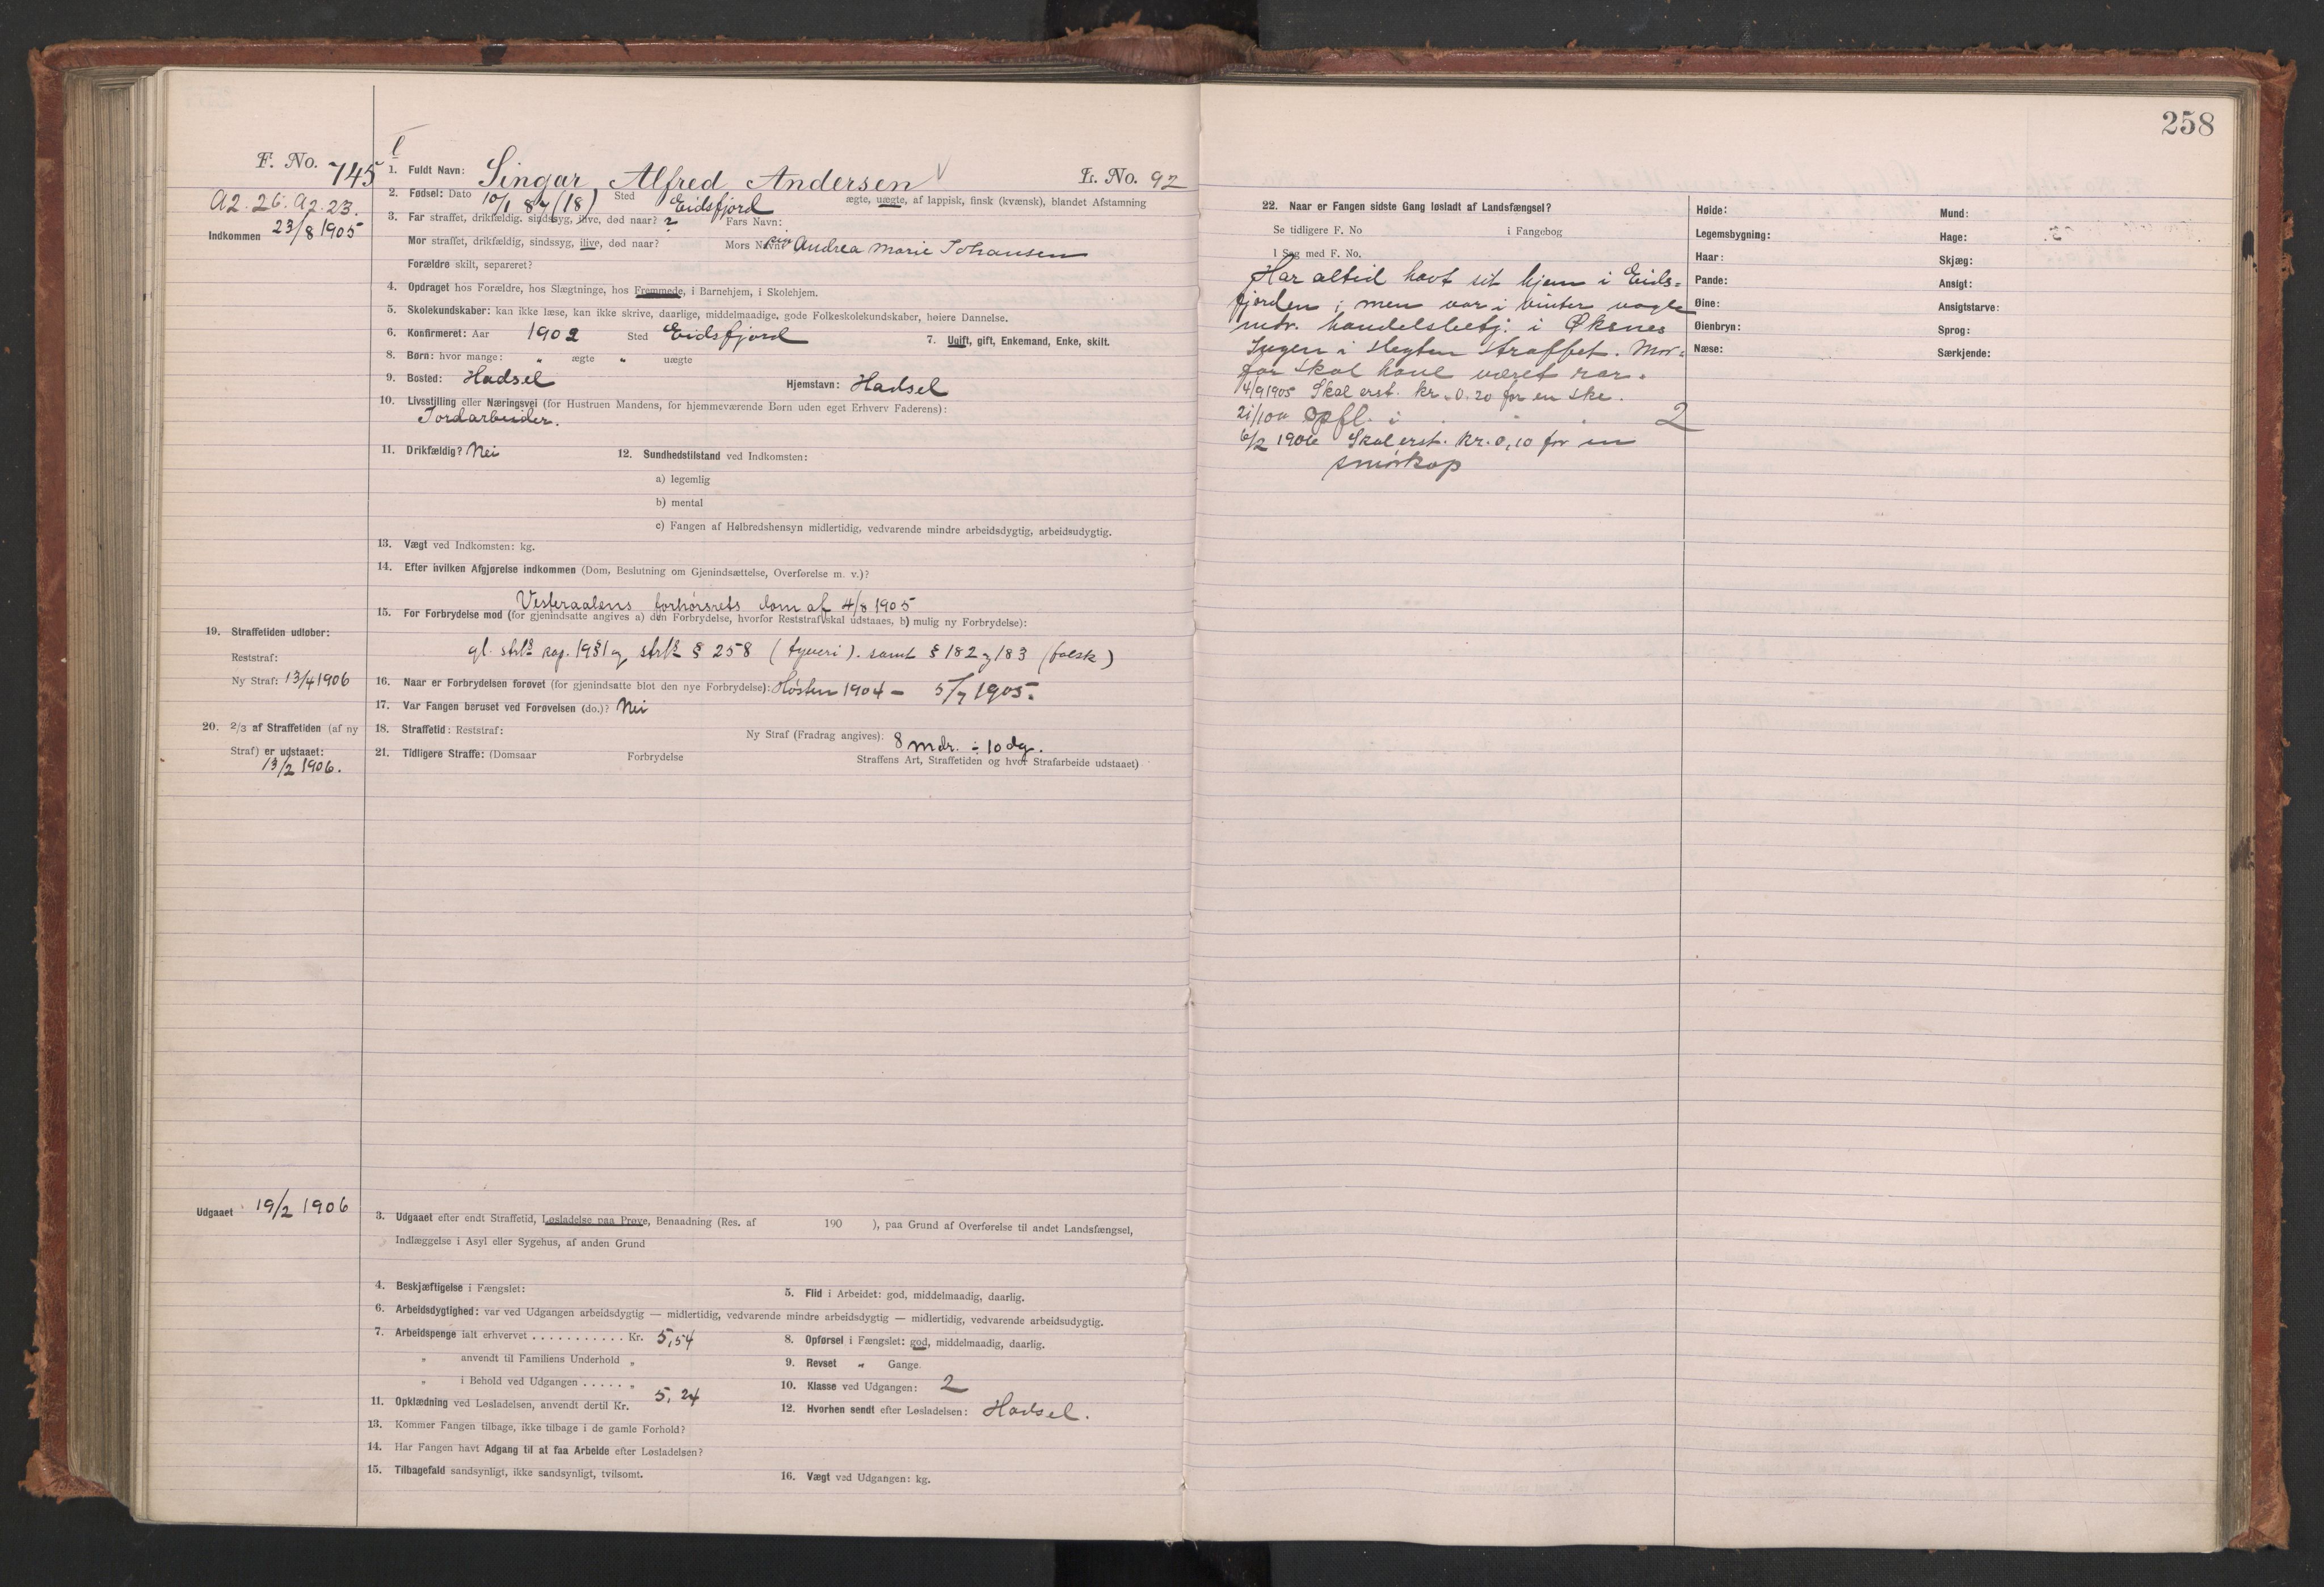 258
F. No. 745
1. Fuldt Navn: Singar Alfred Andersen L. No. 92
A2. 26. A2. 23.
2. Fødsel: Dato 10/1 87 (18) Sted Eidsfjord ægte, uægte, af lappisk, finsk (kvænsk), blandet Afstamning
Indkommen 23/8 1905
3. Far straffet, drikfældig, sindssyg, ilive, død naar? ? Fars Navn:
Mor straffet, drikfældig, sindssyg, ilive, død naar? Mors Navn: Andrea Marie Johansen
Forældre skilt, separeret?
4. Opdraget hos Forældre, hos Slægtninge, hos Fremmede, i Barnehjem, i Skolehjem.
5. Skolekundskaber: kan ikke læse, kan ikke skrive, daarlige, middelmaadige, gode Folkeskolekundskaber, høiere Dannelse.
6. Konfirmeret: Aar 1902 Sted Eidsfjord 7. Ugift, gift, Enkemand, Enke, skilt.
8. Børn: hvor mange: " ægte " uægte
9. Bosted: Hadsel Hjemstavn: Hadsel
10. Livsstilling eller Næringsvei (for Hustruen Mandens, for hjemmeværende Børn uden eget Erhverv Faderens):
Jordarbeider.
11. Drikfældig? Nei 12. Sundhedstilstand ved Indkomsten:
a) legemlig
b) mental
c) Fangen af Helbredshensyn midlertidig, vedvarende mindre arbeidsdygtig, arbeidsudygtig.
13. Vægt ved Indkomsten: kg.
14. Efter hvilken Afgjørelse indkommen (Dom, Beslutning om Gjenindsættelse, Overførelse m. v.)?
Vesteraalens forhørsrets dom af 4/8 1905
15. For Forbrydelse mod (for gjenindsatte angives a) den Forbrydelse, hvorfor Reststraf skal udstaaes, b) mulig ny Forbrydelse):
gl. strl. kap. 19 § 1 og strl. § 258 (tyveri). samt § 182 og 183 (falsk)
19. Straffetiden udløber:
Reststraf:
Ny Straf: 13/4 1906
16. Naar er Forbrydelsen forøvet (for gjenindsatte blot den nye Forbrydelse): Høsten 1904 – 5/7 1905.
17. Var Fangen beruset ved Forøvelsen (do.)? Nei
20. 2/3 af Straffetiden (af ny
Straf) er udstaaet:
13/2 1906.
18. Straffetid: Reststraf: Ny Straf (Fradrag angives): 8 mdr. ÷ 10 dg.
21. Tidligere Straffe: (Domsaar Forbrydelse Straffens Art, Straffetiden og hvor Strafarbeide udstaaet)
Udgaaet 19/2 1906
3. Udgaaet efter endt Straffetid, Løsladelse paa Prøve, Benaadning (Res. af 190 ), paa Grund af Overførelse til andet Landsfængsel,
Indlæggelse i Asyl eller Sygehus, af anden Grund
4. Beskjæftigelse i Fængslet: 5. Flid i Arbeidet: god, middelmaadig, daarlig.
6. Arbeidsdygtighed: var ved Udgangen arbeidsdygtig — midlertidig, vedvarende mindre arbeidsdygtig — midlertidig, vedvarende arbeidsudygtig.
7. Arbeidspenge ialt erhvervet . . . . . . . . . . . Kr. 5,54 8. Opførsel i Fængslet: god, middelmaadig, daarlig.
" anvendt til Familiens Underhold " 9. Revset " Gange.
" i Behold ved Udgangen . . . . . " 5,24 10. Klasse ved Udgangen: 2
11. Opklædning ved Løsladelsen, anvendt dertil Kr. 12. Hvorhen sendt efter Løsladelsen: Hadsel.
13. Kommer Fangen tilbage, ikke tilbage i de gamle Forhold?
14. Har Fangen havt Adgang til at faa Arbeide efter Løsladelsen?
15. Tilbagefald sandsynligt, ikke sandsynligt, tvilsomt. 16. Vægt ved Udgangen: kg.
22. Naar er Fangen sidste Gang løsladt af Landsfængsel?
Se tidligere F. No i Fangebog
I Sag med F. No.
Har altid havt sit hjem i Eids=
fjorden; men var i vinter nogle
mdr. handelsbetj. i Øksnes
Ingen i slegten straffet. Mor=
far skal have været rar.
4/9 1905 Skal erst. kr. 0.20 for en ske.
21/10 " Opfl. i 2
6/2 1906 Skal erst. kr. 0,10 for en
smørkop
Høide: Mund:
Legemsbygning: Hage:
Haar: Skjæg:
Pande: Ansigt:
Øine: Ansigtsfarve:
Øienbryn: Sprog:
Næse: Særkjende: